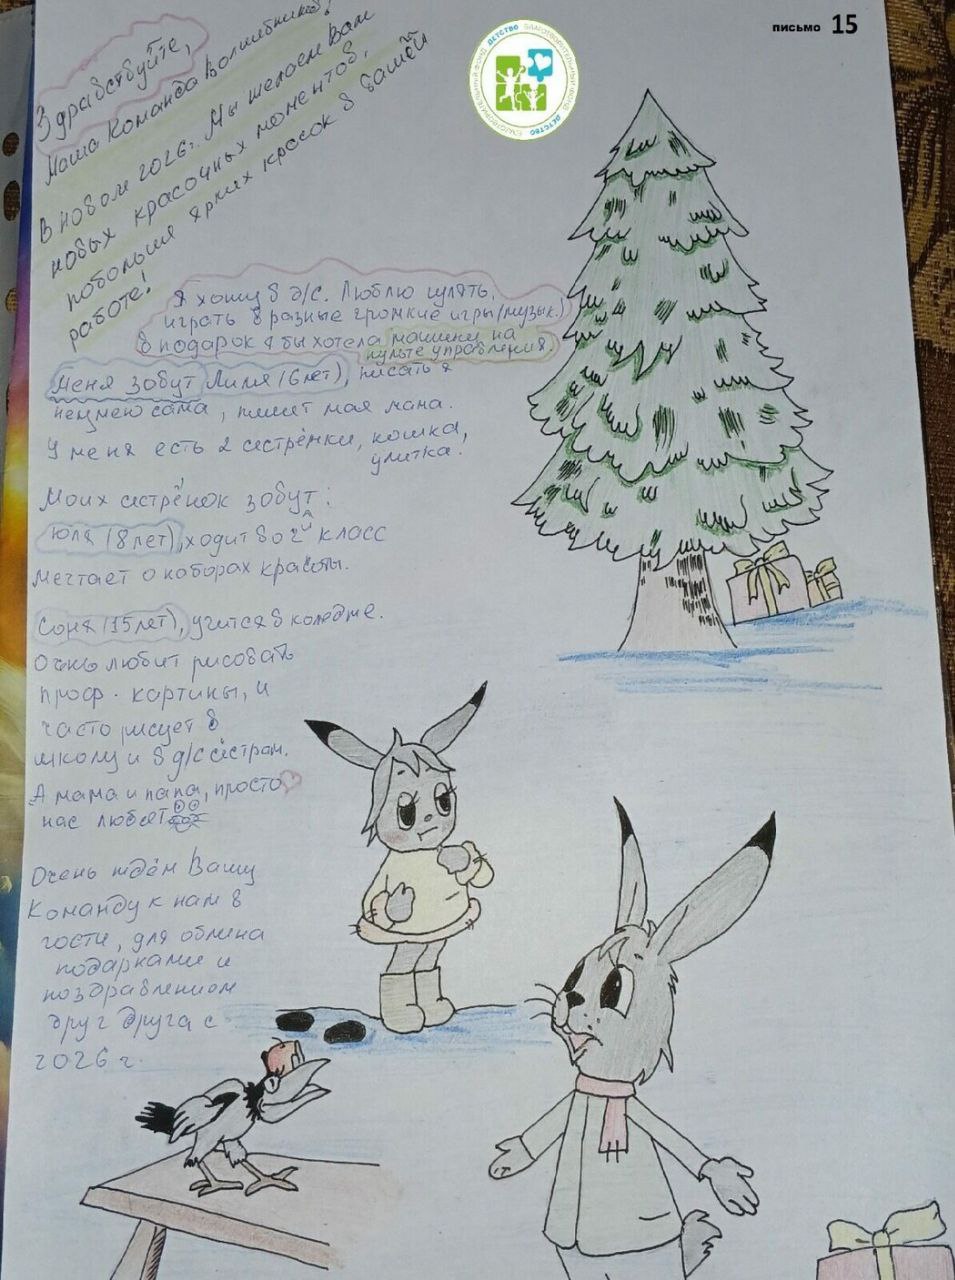 письмо 15
БЛАГОТВОРИТЕЛЬНЫЙ ФОНД ДЕТСТВО
БЛАГОТВОРИТЕЛЬНЫЙ ФОНД ДЕТСТВО
Здравствуйте,
Наша Команда Волшебников!
В новом 2026г. Мы желаем Вам
новых красочных моментов,
побольше ярких красок в вашей
работе!
Я хожу в д/с. Люблю гулять,
играть в разные громкие игры (музык.)
В подарок я бы хотела машинку на
пульте управления
Меня зовут Лиля (6 лет), писать я
неумею сама, пишет моя мама.
У меня есть 2 сестрёнки, кошка,
улитка.
Моих сестрёнок зовут:
Юля (8 лет), ходит во 2й класс
Мечтает о наборах красоты.
Соня (15 лет), учится в коледже.
Очень любит рисовать
проф. картины, и
часто рисует в
школу и в д/с сёстрам.
А мама и папа, просто
нас любят
Очень ждём Вашу
Команду к нам в
гости, для обмена
подарками и
поздравлением
друг друга с
2026 г.